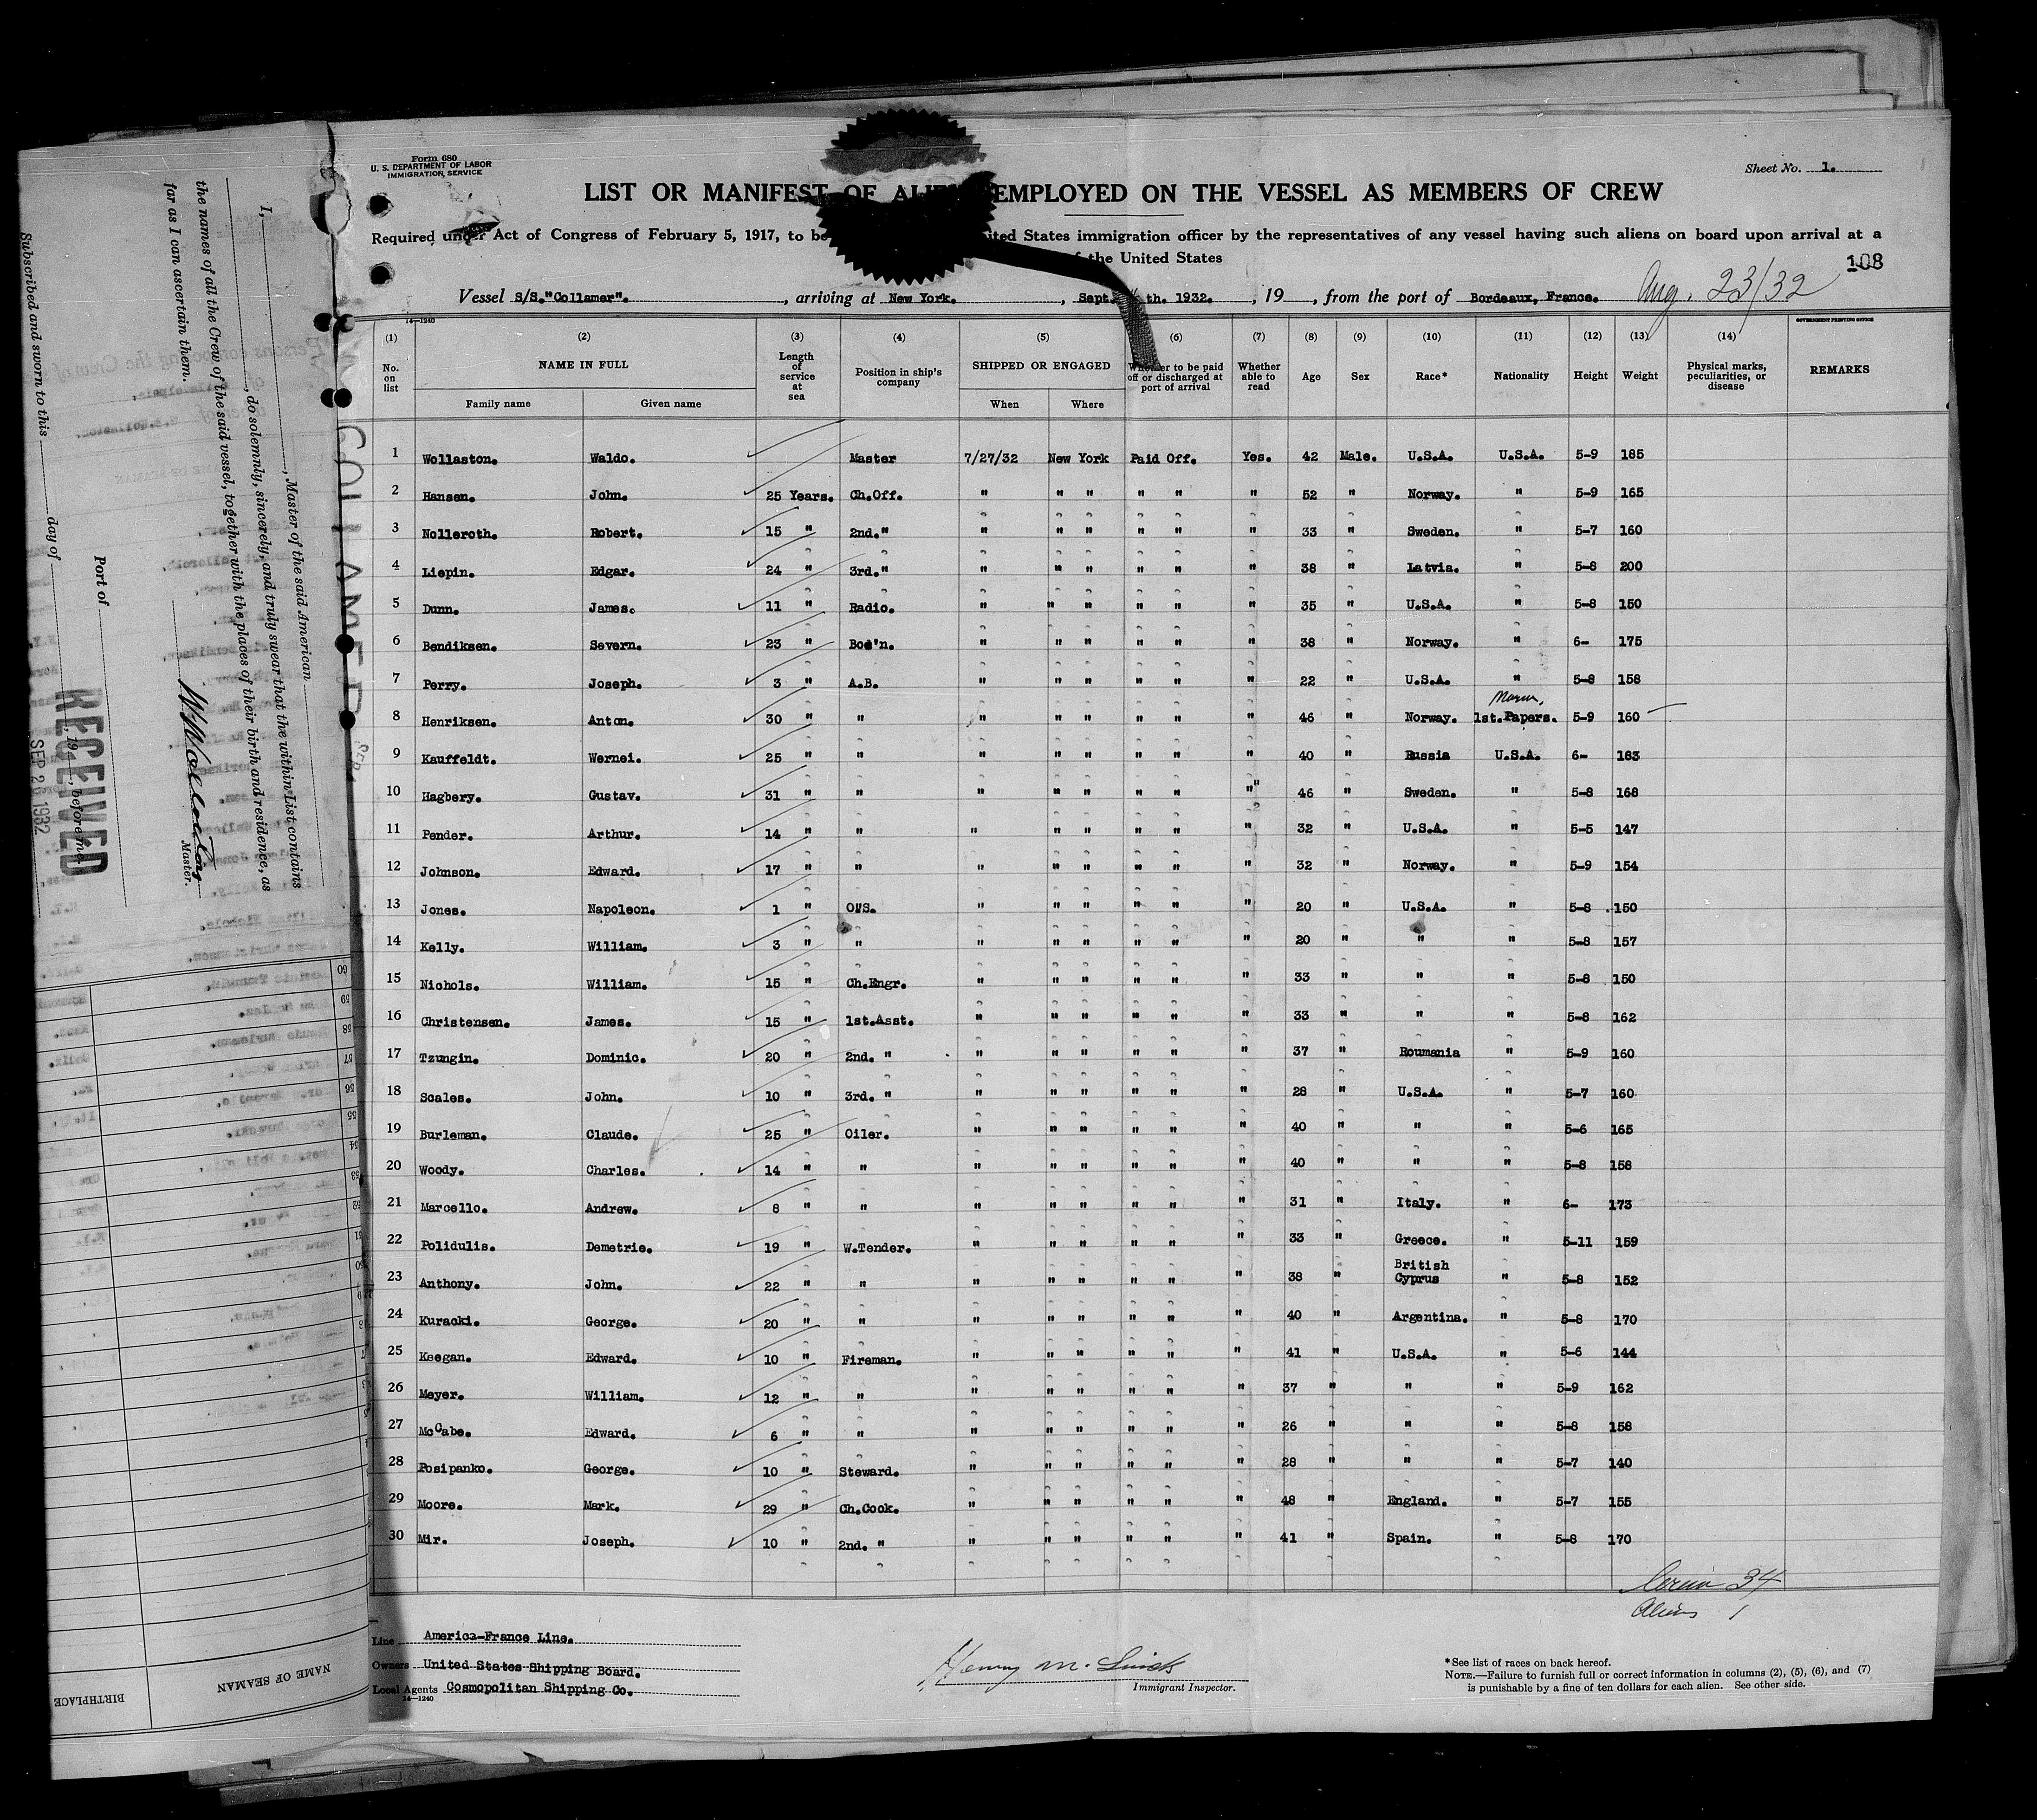 Form 680
U. S. DEPARTMENT OF LABOR
IMMIGRATION SERVICE
Sheet No. 1.
LIST OR MANIFEST OF EMPLOYED ON THE VESSEL AS MEMBERS OF CREW
Required under Act of Congress of February 5, 1917, to be States immigration officer by the representatives of any vessel having such aliens on board upon arrival at a
the United States
108
Vessel S/S."Collamer"., arriving at New York., Sept. th. 1932., 19, from the port of Bordeaux, France. Aug. 23/32
14-1240
GOVERNMENT PRINTING OFFICE
(1) (2) (3) (4) (5) (6) (7) (8) (9) (10) (11) (12) (13) (14)
No. on list NAME IN FULL Length of service at sea Position in ship's company SHIPPED OR ENGAGED Whether to be paid off or discharged at port of arrival Whether able to read Age Sex Race* Nationality Height Weight Physical marks, peculiarities, or disease REMARKS
Family name Given name When Where
1 Wollaston. Waldo. Master 7/27/32 New York Paid Off. Yes. 42 Male. U.S.A. U.S.A. 5-9 185
2 Hansen. John. 25 Years. Ch.Off. " " " " " " 52 " Norway. " 5-9 165
3 Nolleroth. Robert. 15 " 2nd." " " " " " " 33 " Sweden. " 5-7 160
4 Liepin. Edgar. 24 " 3rd." " " " " " " 38 " Latvia. " 5-8 200
5 Dunn. James. 11 " Radio. " " " " " " 35 " U.S.A. " 5-8 150
6 Bendiksen. Severn. 23 " Bos'n. " " " " " " 38 " Norway. " 6- 175
7 Perry. Joseph. 3 " A.B. " " " " " " 22 " U.S.A. " 5-8 158
8 Henriksen. Anton. 30 " " " " " " " " 46 " Norway. 1st.Papers. 5-9 160
9 Kauffeldt. Wernei. 25 " " " " " " " " 40 " Russia U.S.A. 6- 183
10 Hagbery. Gustav. 31 " " " " " " " "" 46 " Sweden. " 5-8 168
11 Pender. Arthur. 14 " " " " " " " " 32 " U.S.A. " 5-5 147
12 Johnson. Edward. 17 " " " " " " " " 32 " Norway. " 5-9 154
13 Jones. Napoleon. 1 " O"S. " " " " " " 20 " U.S.A. " 5-8 150
14 Kelly. William. 3 " " " " " " " " 20 " " " 5-8 157
15 Nichols. William. 15 " Ch.Engr. " " " " " " 33 " " " 5-8 150
16 Christensen. James. 15 " 1st.Asst. " " " " " " 33 " " " 5-8 162
17 Tzungin. Dominic. 20 " 2nd. " " " " " " " 37 " Roumania " 5-9 160
18 Scales. John. 10 " 3rd. " " " " " " " 28 " U.S.A. " 5-7 160
19 Burleman. Claude. 25 " Oiler. " " " " " " 40 " " " 5-6 165
20 Woody. Charles. 14 " " " " " " " " 40 " " " 5-8 158
21 Marcello. Andrew. 8 " " " " " " " " 31 " Italy. " 6- 173
22 Polidulis. Demetrie. 19 " W.Tender. " " " " " " 33 " Greece. " 5-11 159
23 Anthony. John. 22 " " " " " " " " 38 " British Cyprus " 5-8 152
24 Kuracki. George. 20 " " " " " " " " 40 " Argentina. " 5-8 170
25 Keegan. Edward. 10 " Fireman. " " " " " " 41 " U.S.A. " 5-6 144
26 Meyer. William. 12 " " " " " " " " 37 " " " 5-9 162
27 McCabe. Edward. 6 " " " " " " " " 26 " " " 5-8 158
28 Posipanko. George. 10 " Steward. " " " " " " 28 " " " 5-7 140
29 Moore. Mark. 29 " Ch.Cook. " " " " " " 48 " England. " 5-7 155
30 Mir. Joseph. 10 " 2nd. " " " " " " " 41 " Spain. " 5-8 170
34
Aliens 1
Line America-France Line.
Owners United States Shipping Board.
Local Agents Cosmopolitan Shipping Co.
14-1240
Immigrant Inspector.
*See list of races on back hereof.
NOTE.—Failure to furnish full or correct information in columns (2), (5), (6), and (7)
is punishable by a fine of ten dollars for each alien. See other side.
I, , Master of the said American
, do solemnly, sincerely, and truly swear that the within List contains
the names of all the Crew of the said vessel, together with the places of their birth and residence, as
far as I can ascertain them.
W. Wollaston
Master.
Port of
Subscribed and sworn to this day of , 19 , before me,
RECEIVED
SEP 26 1932
COLLAMER
NAME OF SEAMAN
BIRTHPLACE
60
59
58
57
56
55
54
53
52
51